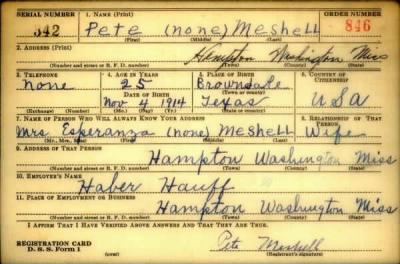 SERIAL NUMBER 1. NAME (Print) ORDER NUMBER
342 Pete (none) Meshell 846
(First) (Middle) (Last)
2. ADDRESS (Print)
Hampton Washington Miss
(Number and street or R. F. D. number) (Town) (County) (State)
3. TELEPHONE 4. AGE IN YEARS 5. PLACE OF BIRTH 6. COUNTRY OF CITIZENSHIP
none 25
DATE OF BIRTH (Town or county)
Nov 4 1914 Texas USA
(Exchange) (Number) (Mo.) (Day) (Yr.) (State or country)
7. NAME OF PERSON WHO WILL ALWAYS KNOW YOUR ADDRESS 8. RELATIONSHIP OF THAT PERSON
Mrs. Esperanza (none) Meshell Wife
(Mr., Mrs., Miss) (First) (Middle) (Last)
9. ADDRESS OF THAT PERSON
Hampton Washington Miss
(Number and street or R. F. D. number) (Town) (County) (State)
10. EMPLOYER'S NAME
Haber Hauff
11. PLACE OF EMPLOYMENT OR BUSINESS
Hampton Washington Miss
(Number and street or R. F. D. number) (Town) (County) (State)
I AFFIRM THAT I HAVE VERIFIED ABOVE ANSWERS AND THAT THEY ARE TRUE.
REGISTRATION CARD Pete Meshell
D. S. S. Form 1 (over) (Registrant's signature)